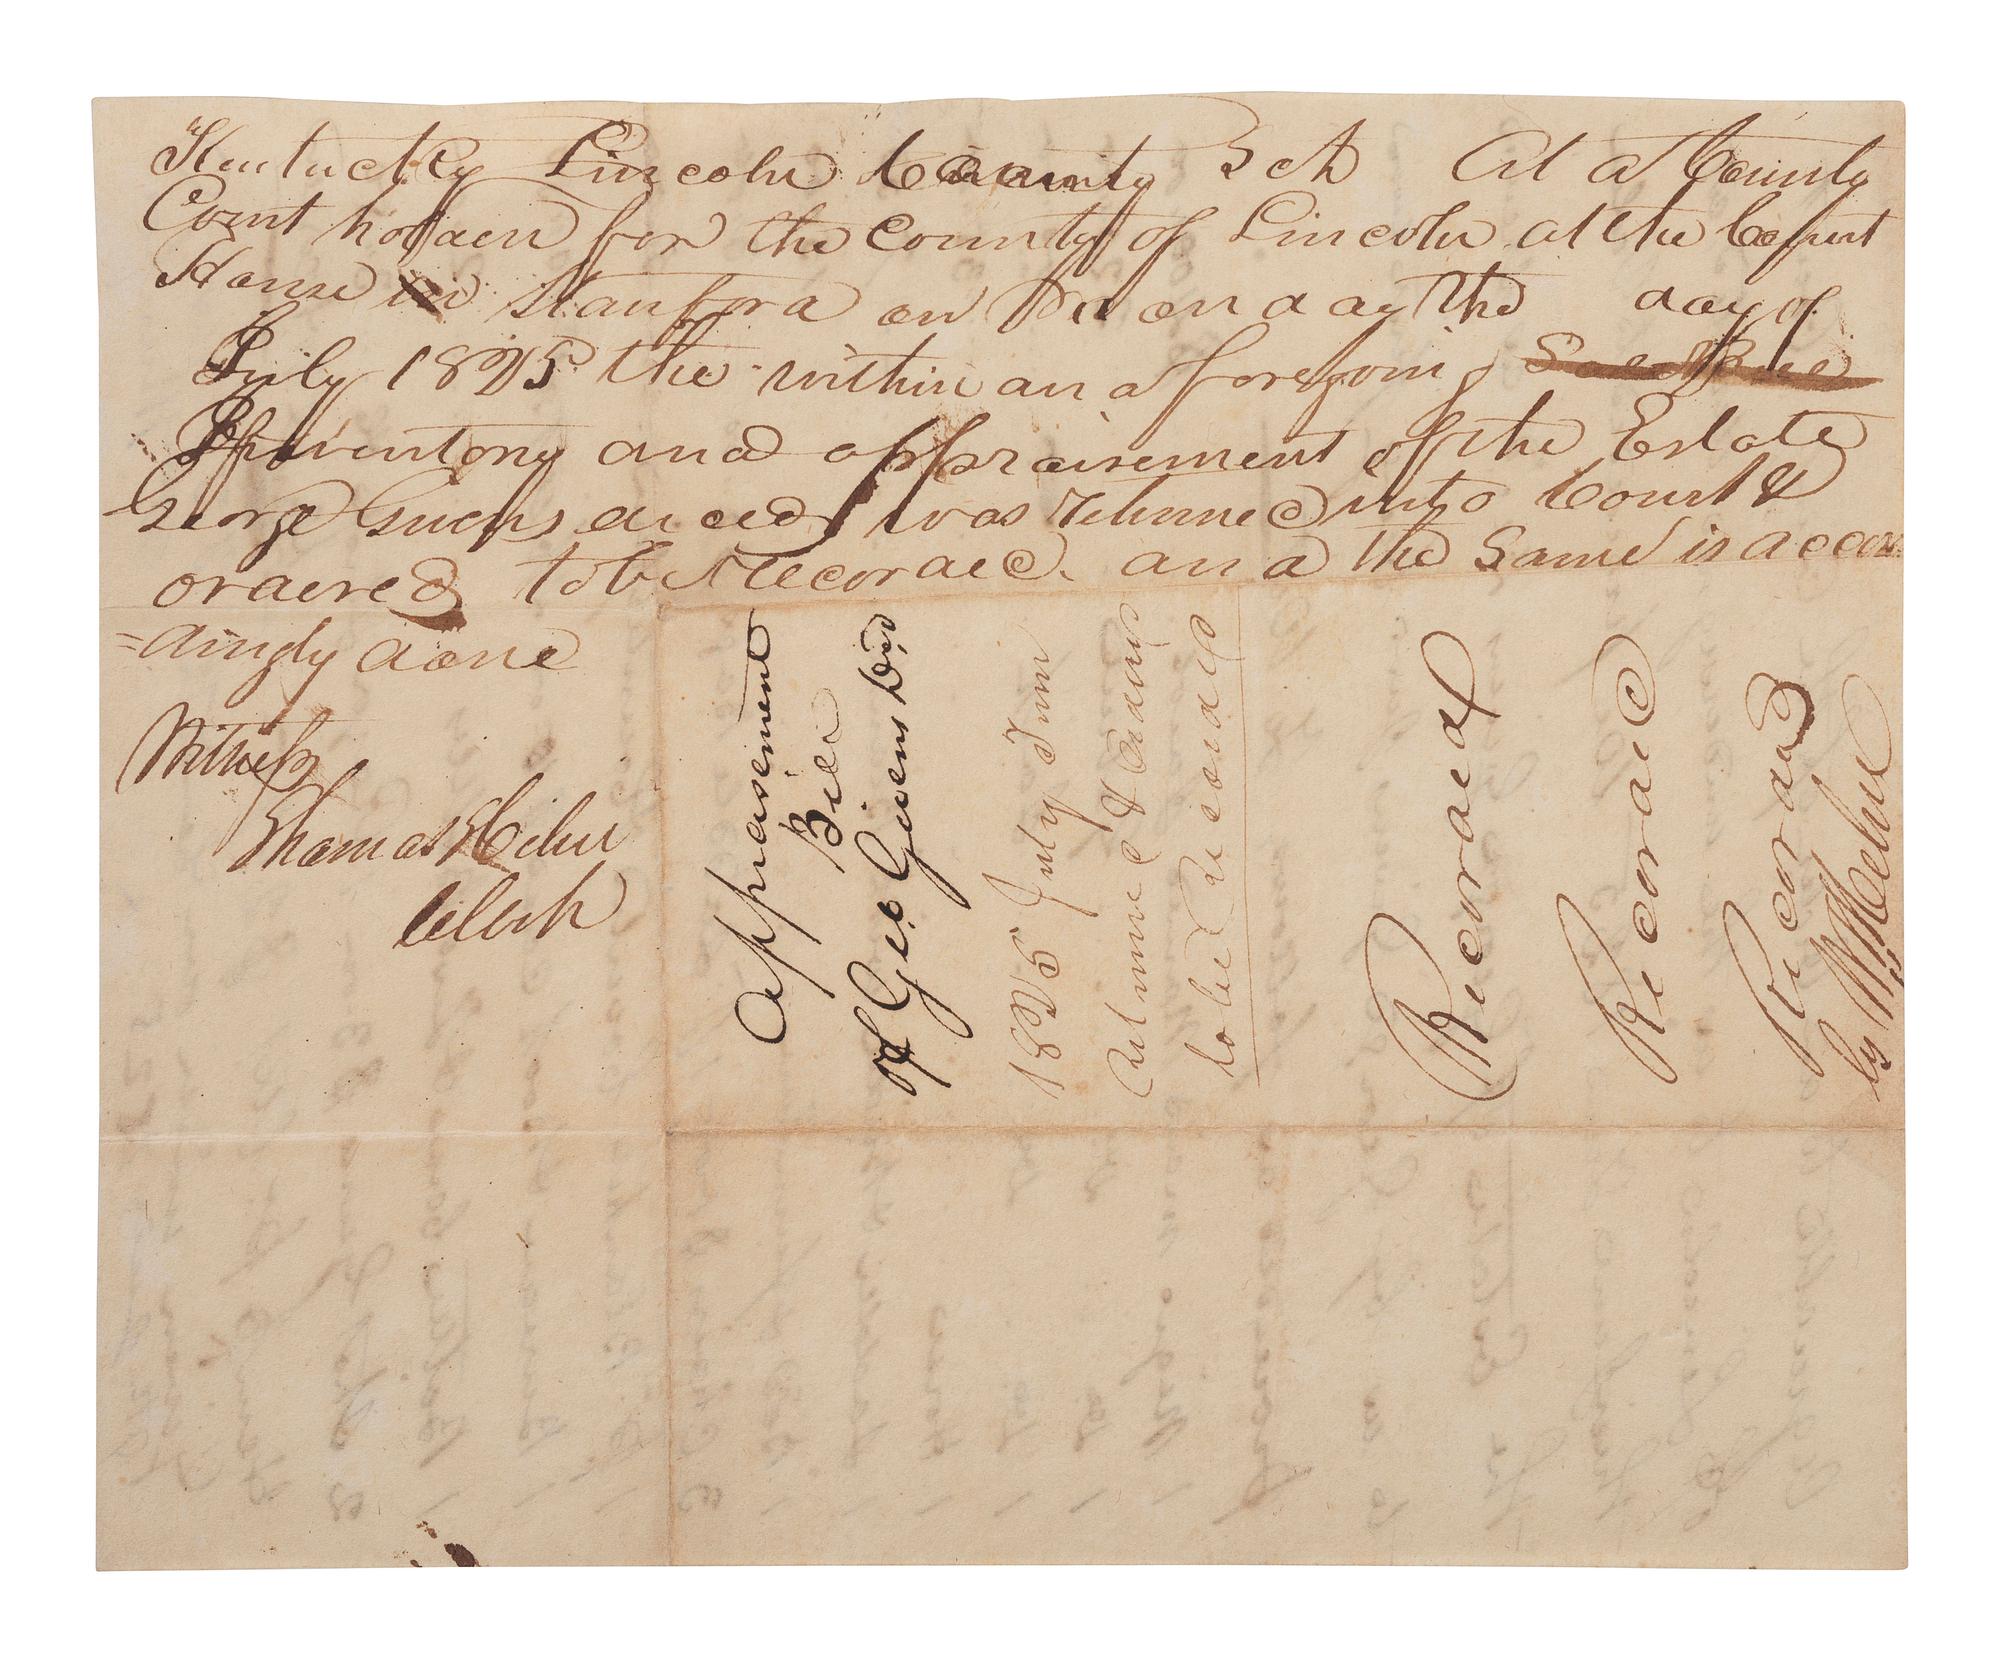 Kentucky Lincoln County Sct At a County
Court holden for the County of Lincoln at the Court
House in Stanford on Monday the day of
July 1825 the within an aforegoing
Inventory and appraisement of the Estate
George Givens deced was Returned into Court &
ordered tobe Recorded. and the Same is accor
=dingly done
Witness
Thomas Helm
Clerk
Appraisement
Bill
of Geo Givens Decd
1825 July Term
Returned & ordered
tobe Recorded
Recorded
Recorded
Recorded
by